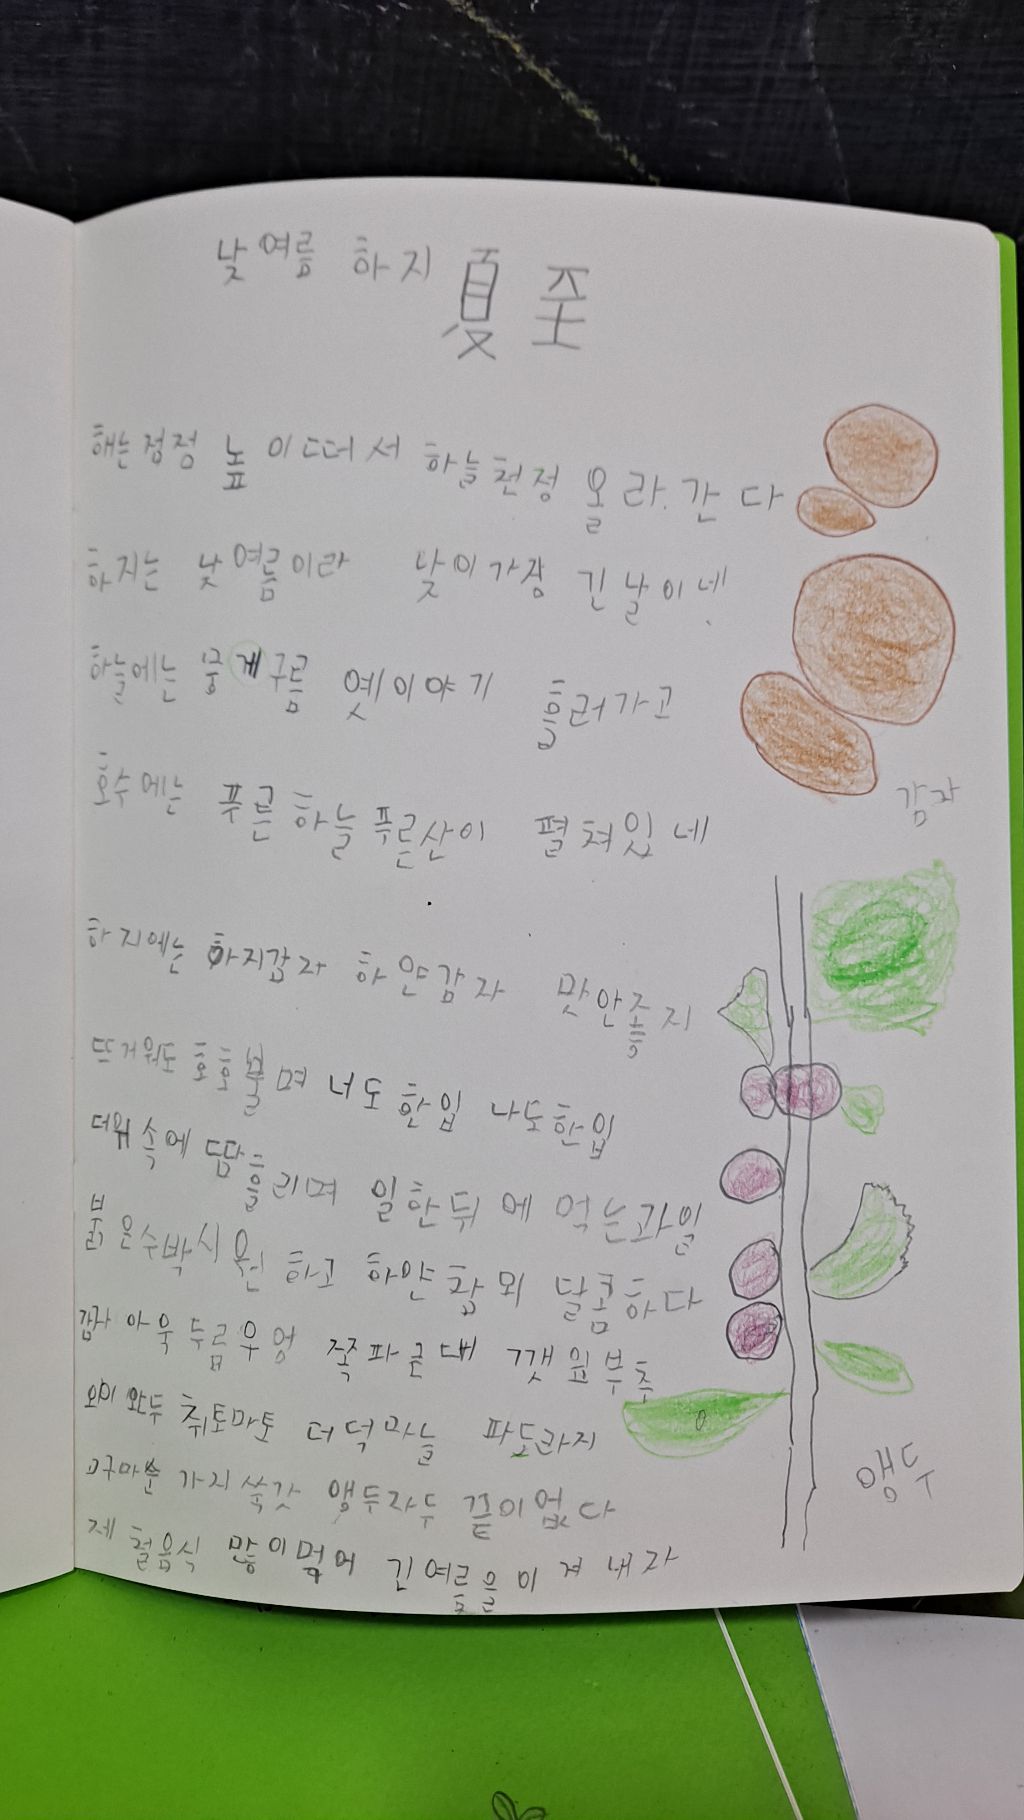 낮여름 하지 夏至
해는점점 높이떠서 하늘천정 올라간다
하지는 낮여름이라 낮이가장 긴날이네
하늘에는 뭉게구름 옛이야기 흘러가고
호수에는 푸른하늘 푸른산이 펼쳐있네
하지에는 하지감자 하얀감자 맛안좋지
뜨거워도 호호불며 너도한입 나도한입
더위속에 땀흘리며 일한뒤에 먹는과일
붉은수박시원하고 하얀참외 달콤하다
감자 아욱 두릅우엉 쪽파근대 깻잎부추
오이 완두 취토마토 더덕마늘 파도라지
고구마순 가지쑥갓 앵두자두 끝이없다
제철음식 많이먹어 긴여름을이겨내자
감자
앵두